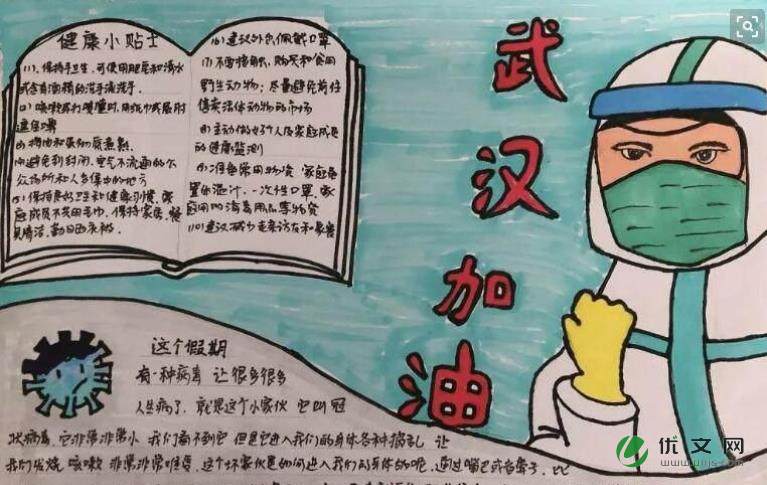 健康小贴士
(1)、保持手卫生,可使用肥皂和清水
或含有酒精的洗手液洗手.
(2)咳嗽或打喷嚏时,用纸巾或屈肘
遮住口鼻
(3)将肉和蛋彻底煮熟.
(4)避免到封闭、空气不流通的公
众场所和人多集中的地方
(5)保持良好卫生和健康习惯,家
庭成员不共用毛巾,保持家居、餐
具清洁,勤晒衣被.
(6)建议外出佩戴口罩
(7)不要接触、购买和食用
野生动物;尽量避免前往
售卖活体动物的市场
(8)主动做好个人及家庭成员
的健康监测
(9)准备常用物资 家庭备
置体温计、一次性口罩、家
庭用的消毒用品等物资
(10)建议减少走亲访友和聚餐
武
汉
加
油
这个假期
有一种病毒 让很多很多
人生病了, 就是这个小家伙 它叫 冠
状病毒,它非常非常小 我们看不到它 但是它进入我们的身体各种捣乱 让
我们发烧 咳嗽 非常非常难受, 这个坏家伙是如何进入我们的身体的呢,通过嘴巴或者鼻子, 比
优文网